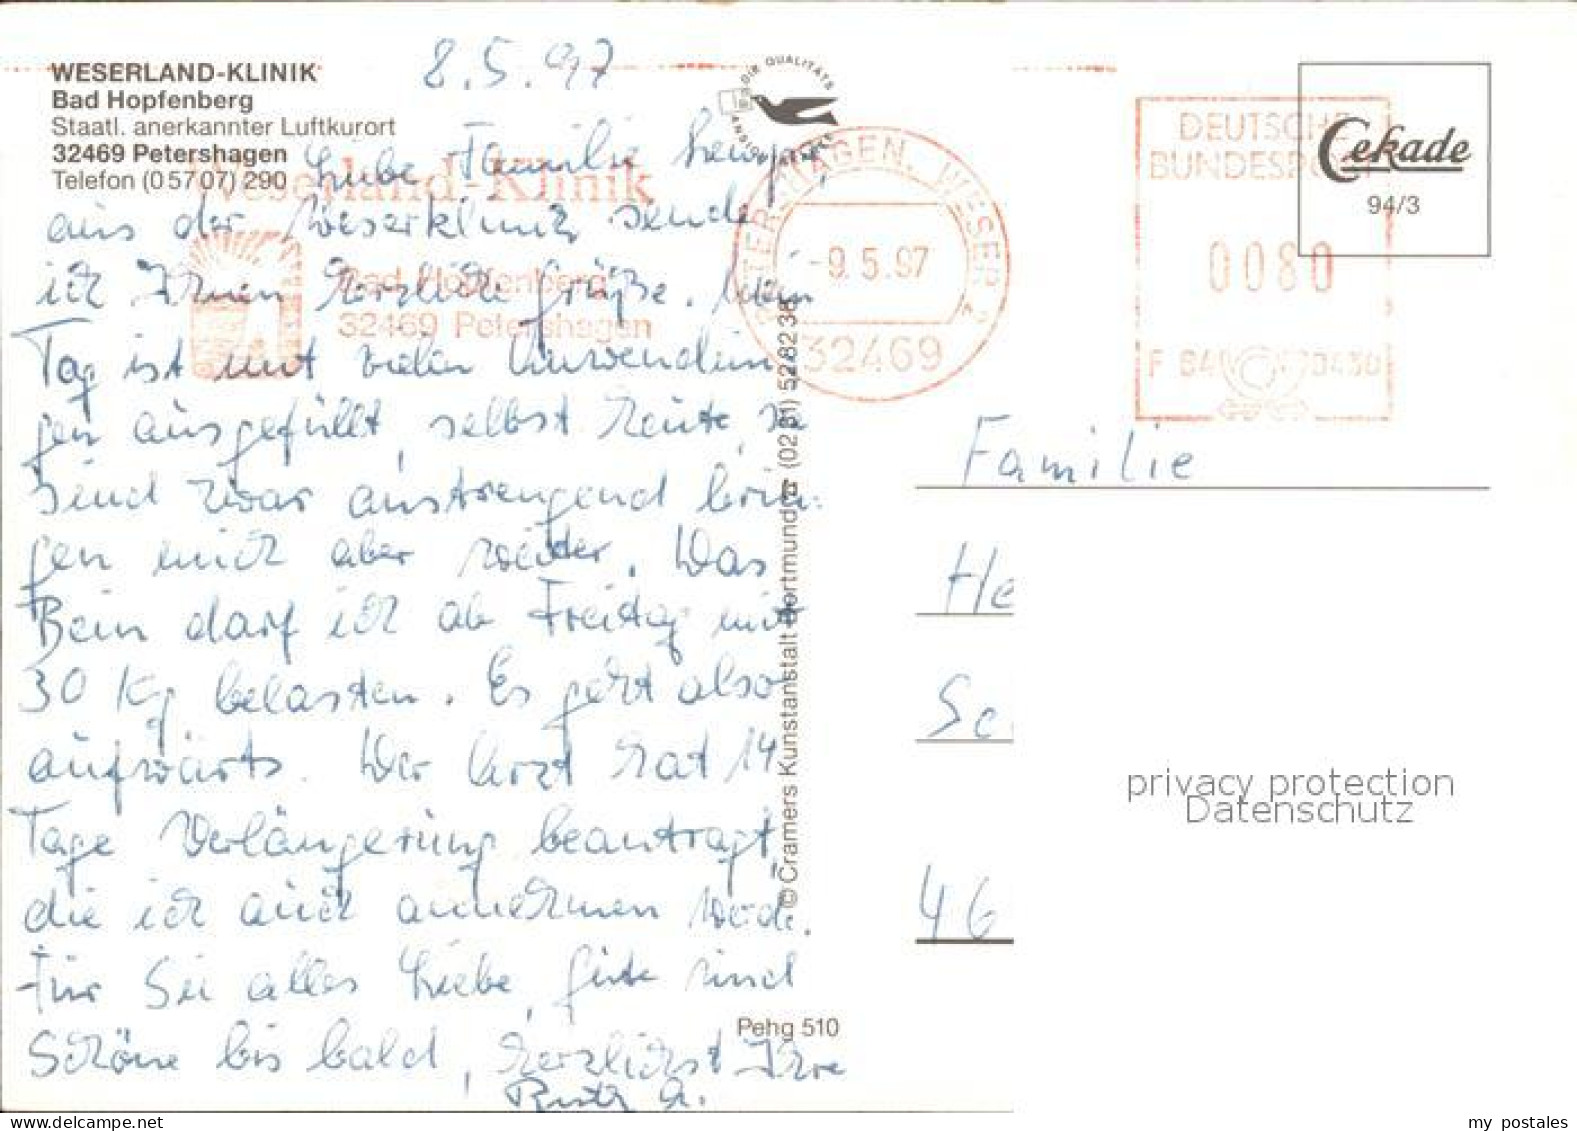 8.5.97
WESERLAND-KLINIK
Bad Hopfenberg
Staatl. anerkannter Luftkurort
32469 Petershagen
Telefon (05707) 290
Liebe Familie
aus der Weserklinik sende
ich Ihnen herzliche Grüße. Mein
Tag ist mit vielen Anwendun
gen ausgefüllt, selbst heute, sie
sind zwar anstrengend brin-
gen mich aber weiter. Das
Bein darf ich ab Freitag mit
30 Kg belasten. Es geht also
aufwärts. Der Arzt hat 14
Tage Verlängerung beantragt,
die ich auch annehmen werde.
Für Sie alles Liebe, Gute und
Schöne bis bald, herzlichst Ihre
Ruth A.
Weserland-Klinik
Bad Hopfenberg
32469 Petershagen
DIE QUALITÄTS
ANSICHTSKARTE
PETERSHAGEN, WESER 2
-9.5.97
32469
DEUTSCHE
BUNDESPOST
0080
Cekade
94/3
Familie
He
Sc
46
© Cramers Kunstanstalt Dortmund ☎ (0231) 528238
Pehg 510
privacy protection
Datenschutz
my postales